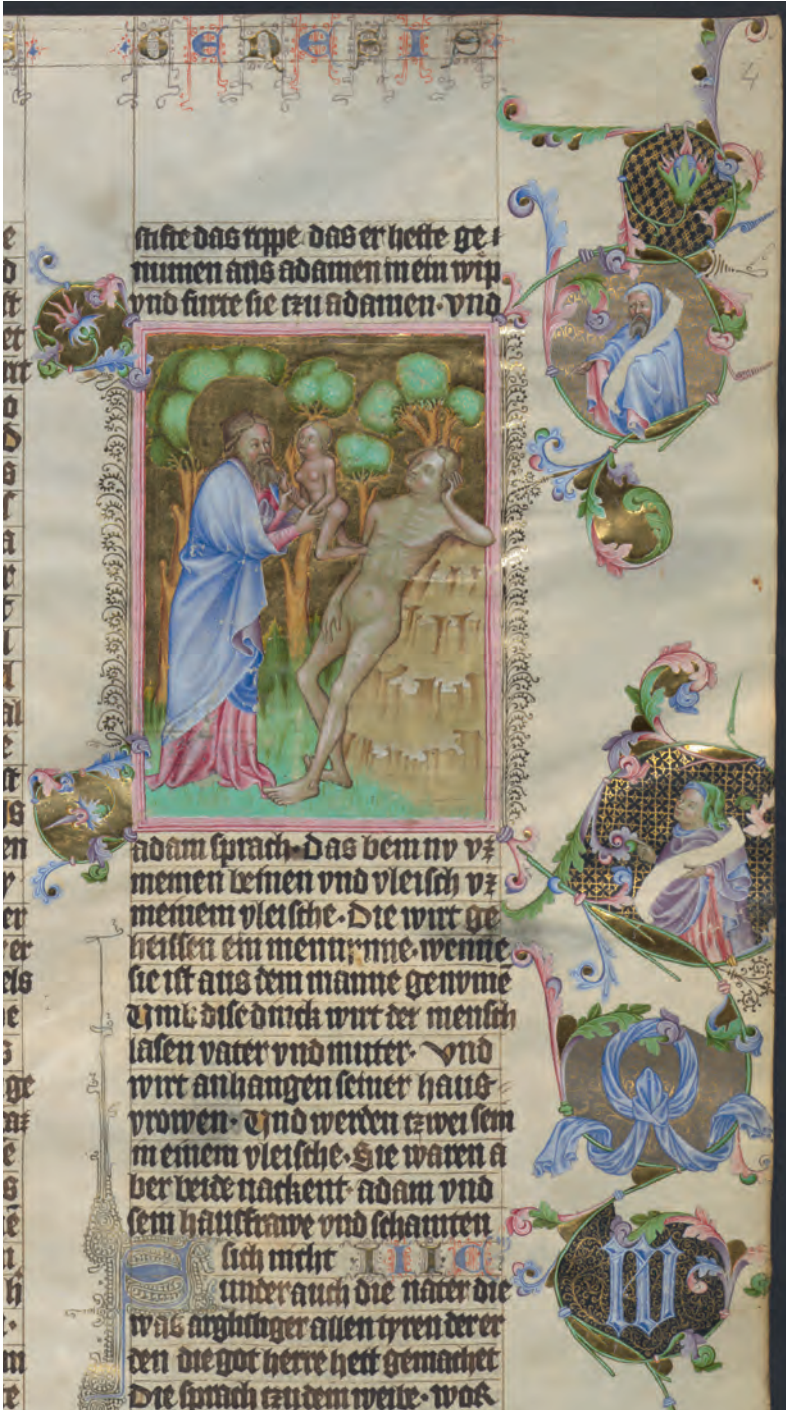 GENESIS
4
stifte das rippe das er hette ge
numen aus adamen in ein wip
vnd furte sie tzu adamen· vnd
adam sprach· Das bein nv vz
meinen beinen vnd vleisch vz
meinem vleische· Die wirt ge
heissen ein mennynne· wenne
sie ist aus dem manne genvmē
Vmb dise dinck wirt der mensch
lasen vater vnd muter· Vnd
wirt anhangen seiner haus
vrowen· Vnd werden tzwei sein
in einem vleische· Sie waren a
ber beide nackent· adam vnd
sein hausfrawe vnd schamten
sich nicht IIIC
Sunder auch die nater die
was arglistiger allen tyren der er
den die got herre hett gemachet
Die sprach tzu dem weibe· wor
W